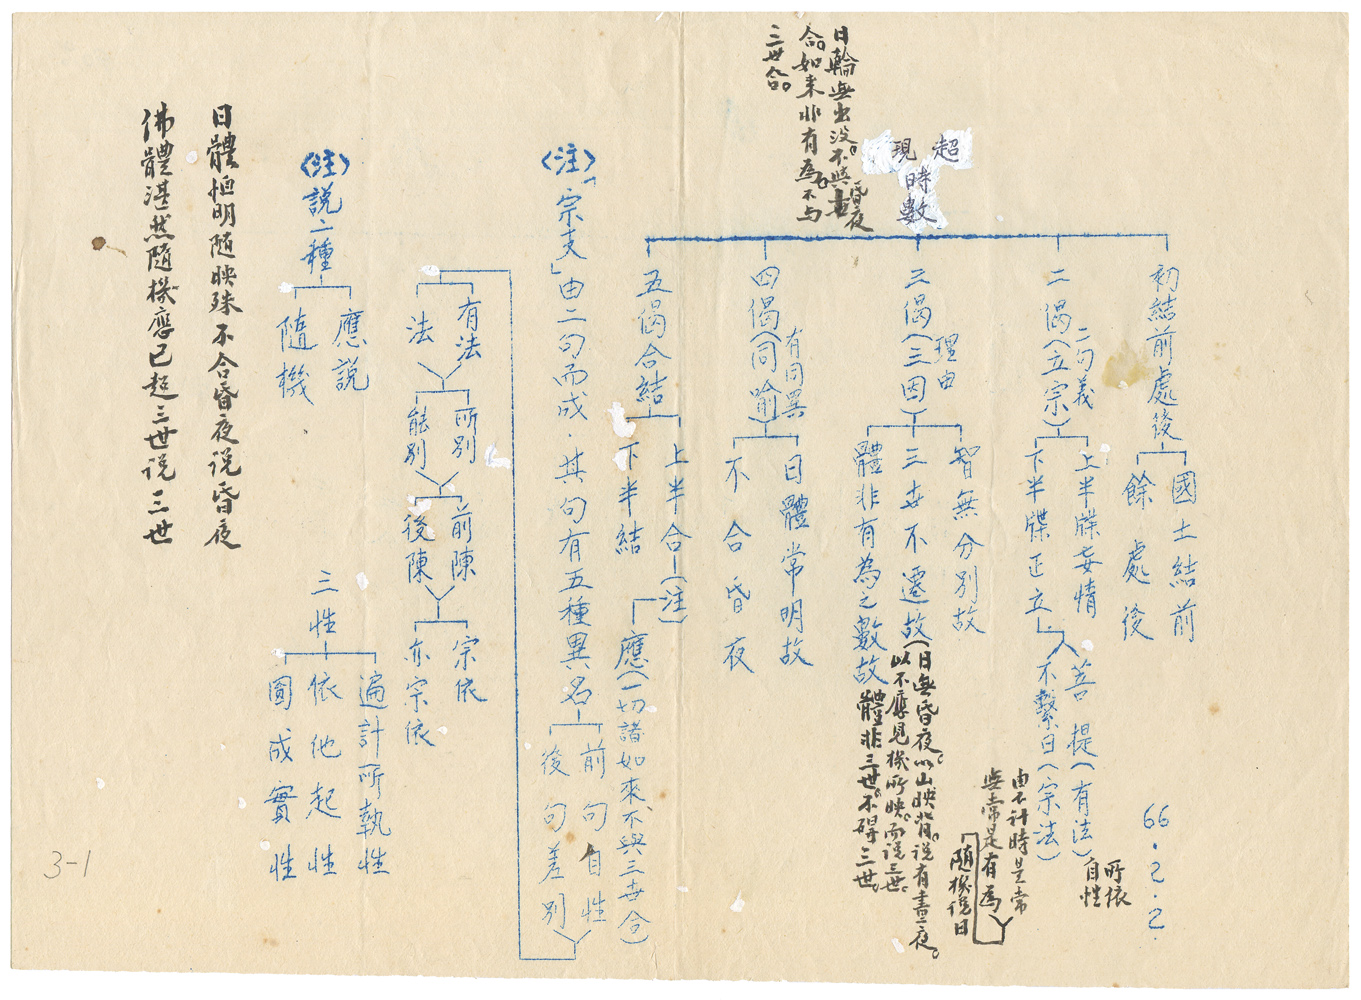 日輪無出沒。不與晝昏夜
合。如来非有為。不与
三世合。
超現
時數
初結前處後
國土結前
餘處後
二偈（立宗）
二句義
上半牒妄情
下半牒正立
菩提（有法）
所依
自性
不繫日（宗法）
由不計時是常
無常是有為
隨機說日
三偈（三因）
理由
智無分別故
三世不遷故
（日無昏夜。以山映背。說有晝夜。
以不應見機所映。而說三世。
體非有為之數故
體非三世。不碍三世。
四偈（同喻）
有同異
日體常明故
不合昏夜
五偈合結
上半合—（注）
下半結
應（一切諸如來，不與三世合）
〈注〉「宗支」由二句而成．其句有五種異名
前句自性
後句差別
有法
法
所別
能別
前陳
後陳
宗依
亦宗依
〈注〉說二種
應說
隨機
三性
遍計所執性
依他起性
圓成實性
日體恒明隨映殊不合昏夜說昏夜
佛體湛然隨機應已超三世說三世
66.2.2.
3-1